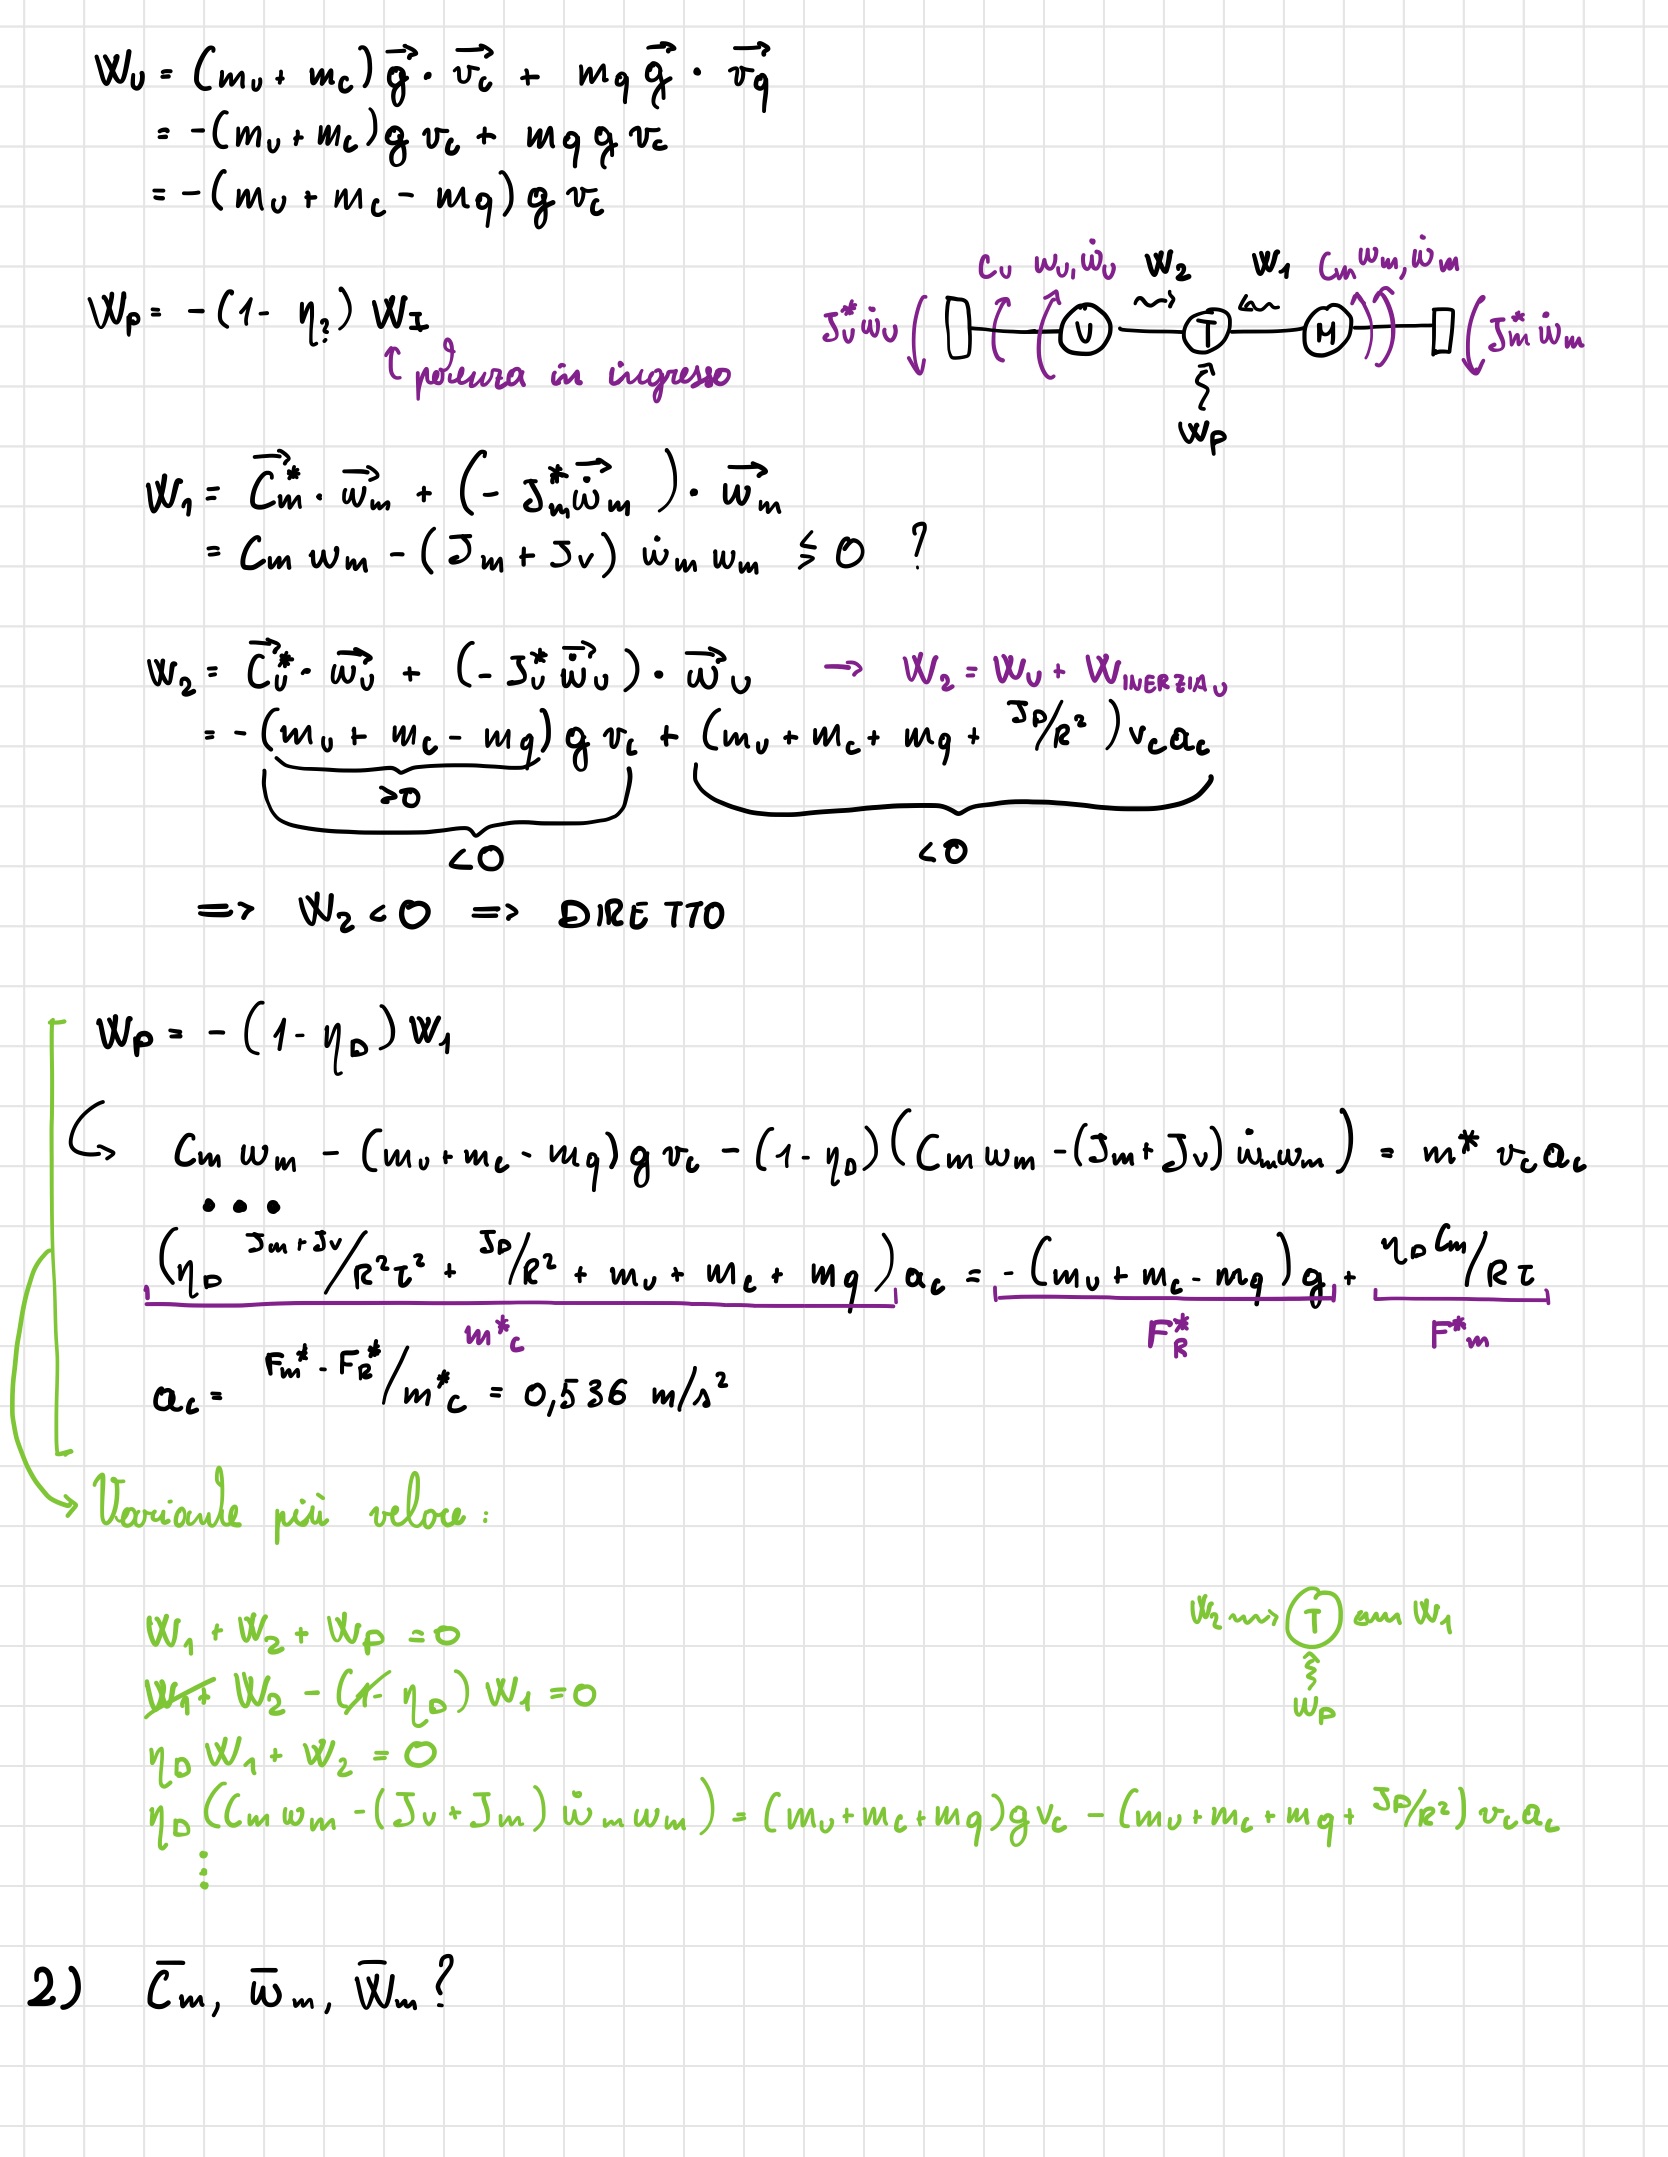 W_U = (m_U + m_C) g⃗ · v_C⃗ + m_q g⃗ · v_q⃗
= -(m_U + m_C) g v_C + m_q g v_C
= -(m_U + m_C - m_q) g v_C
C_U ω_U, ω̇_U W_2 W_1 C_m ω_m, ω̇_m
W_P = -(1 - η_?) W_I
J_U^* ω̇_U U T M J_m^* ω̇_m
↑ potenza in ingresso
W_P
W_1 = C_m^*⃗ · ω_m⃗ + (- J_m^* ω̇_m⃗ ) · ω_m⃗
= C_m ω_m - (J_m + J_v) ω̇_m ω_m ≶ 0 ?
W_2 = C_U^*⃗ · ω_U⃗ + (- J_U^* ω̇_U⃗ ) · ω_U⃗ → W_2 = W_U + W_INERZIA_U
= -(m_U + m_C - m_q) g v_C + (m_U + m_C + m_q + J_P/R²) v_C a_C
>0
<0 <0
=> W_2 < 0 => DIRETTO
W_P = -(1 - η_D) W_1
C_m ω_m - (m_U + m_C - m_q) g v_C - (1 - η_D)(C_m ω_m - (J_m + J_v) ω̇_m ω_m) = m^* v_C a_C
• • •
(η_D J_m + J_v/R²τ² + J_P/R² + m_U + m_C + m_q) a_C = -(m_U + m_C - m_q) g + η_D C_m/Rτ
m^*_C F_R^* F^*_m
a_C = F_m^* - F_R^*/m^*_C = 0,536 m/s²
Variante più veloce:
W_1 + W_2 + W_P = 0
W_2 T W_1
W_1 + W_2 - (1 - η_D) W_1 = 0
W_P
η_D W_1 + W_2 = 0
η_D (C_m ω_m - (J_v + J_m) ω̇_m ω_m) = (m_U + m_C + m_q) g v_C - (m_U + m_C + m_q + J_P/R²) v_C a_C
⋮
2) C̄_m, ω̄_m, W̄_m ?